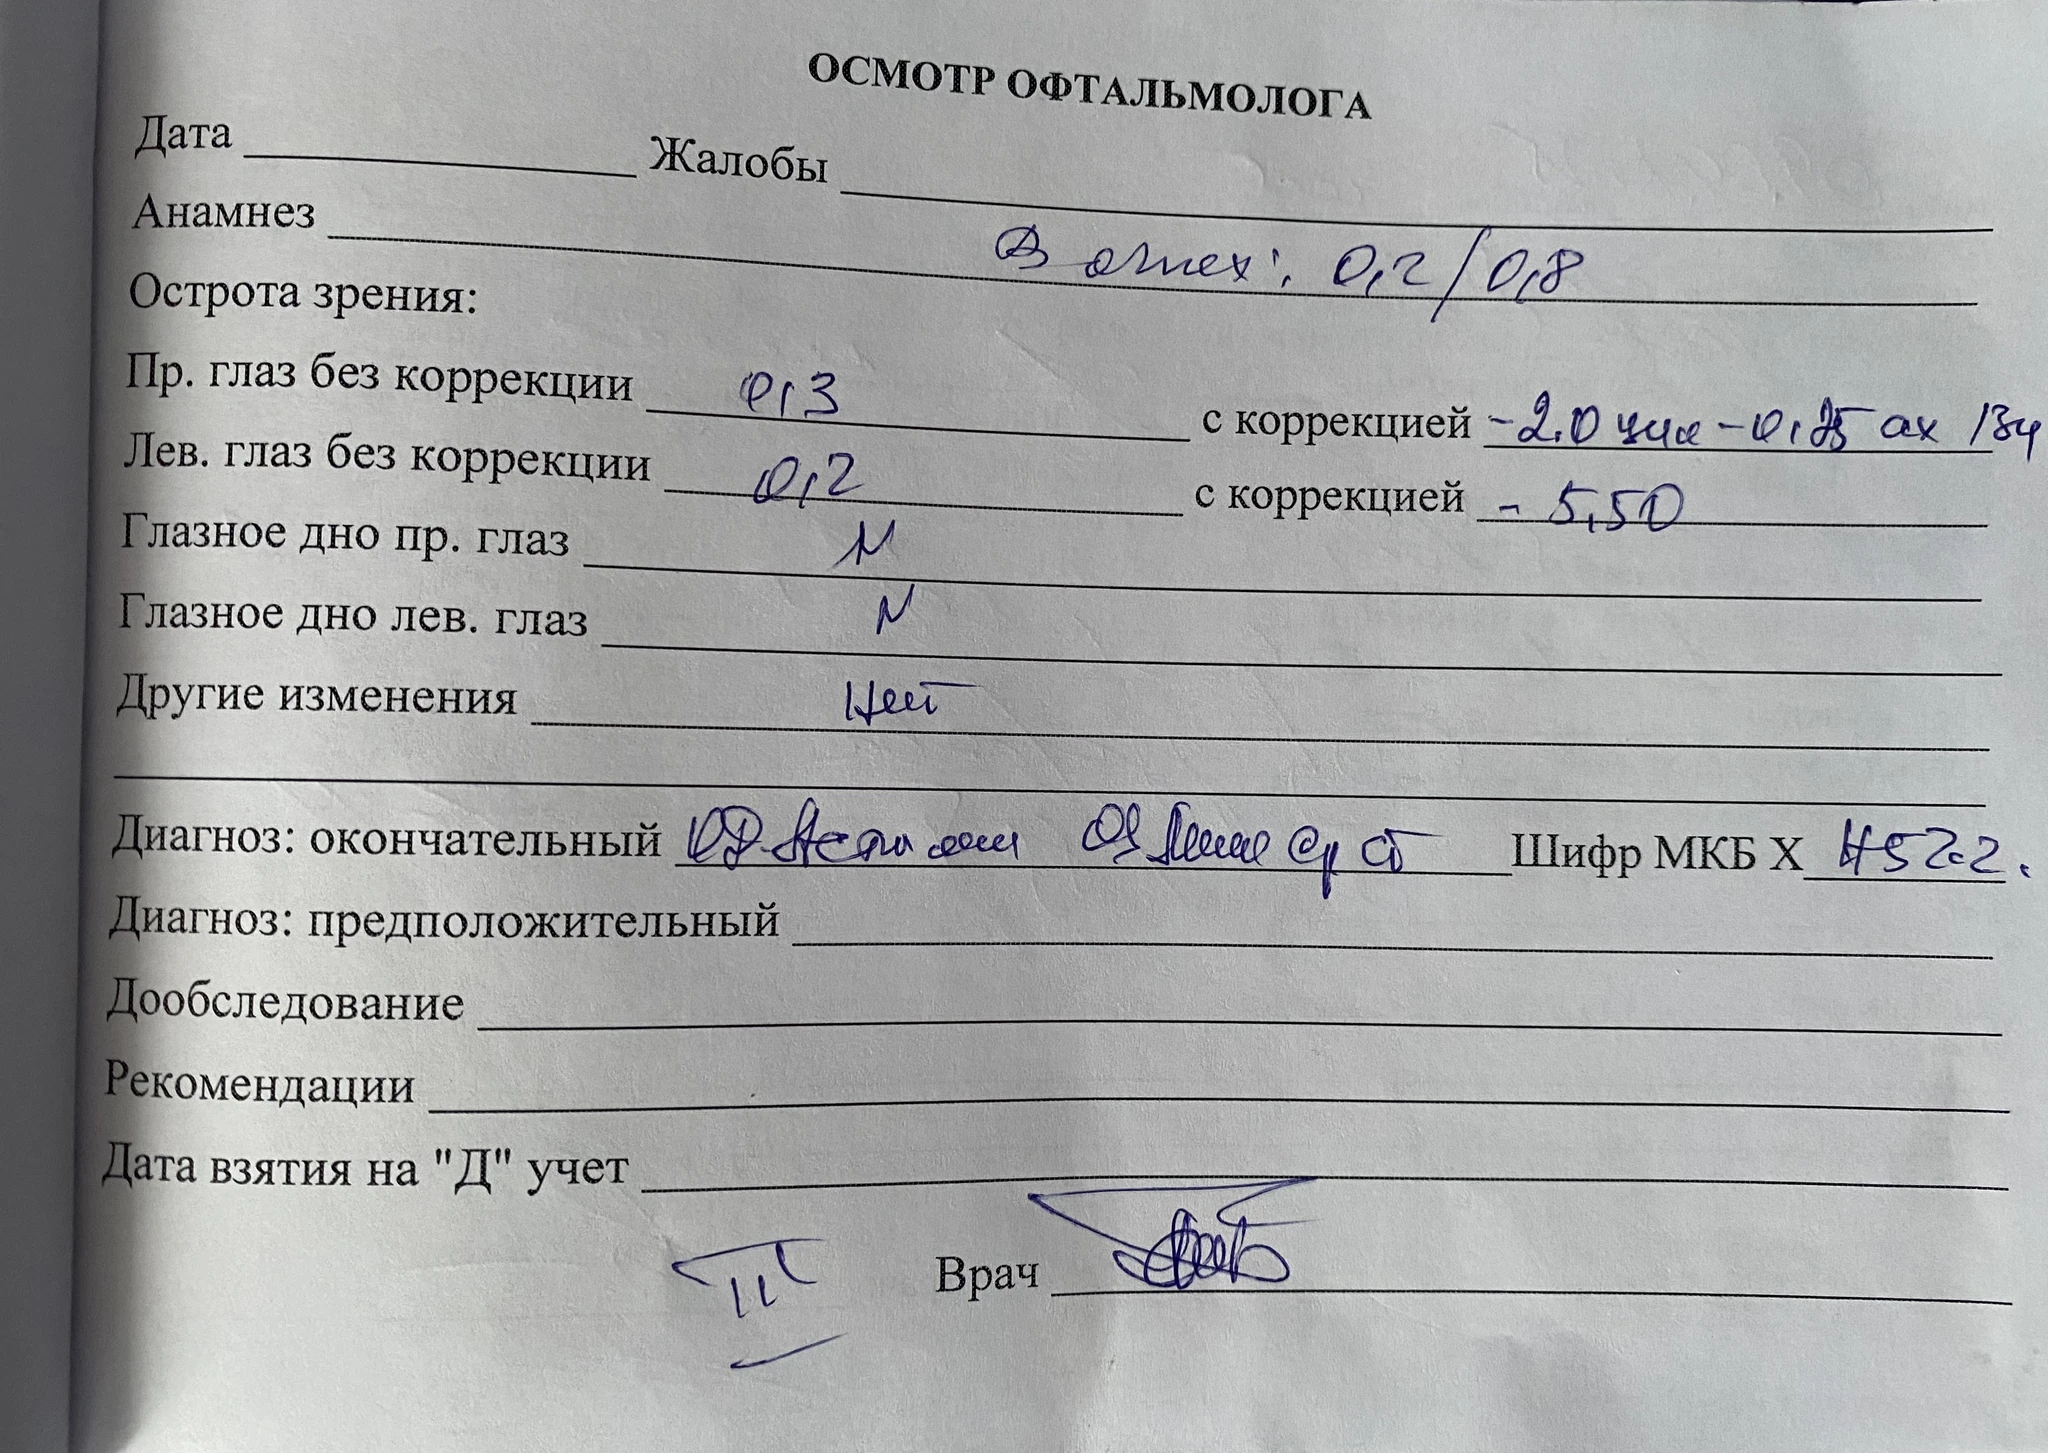 ОСМОТР ОФТАЛЬМОЛОГА
Дата Жалобы
Анамнез В очках: 0,2/0,8
Острота зрения:
Пр. глаз без коррекции 0,3 с коррекцией -2.0 цил -0,75 ax
Лев. глаз без коррекции 0,2 с коррекцией - 5,50
Глазное дно пр. глаз N
Глазное дно лев. глаз N
Другие изменения Нет
Диагноз: окончательный OD OS ср ст Шифр МКБ X H52.2.
Диагноз: предположительный
Дообследование
Рекомендации
Дата взятия на "Д" учет
III Врач